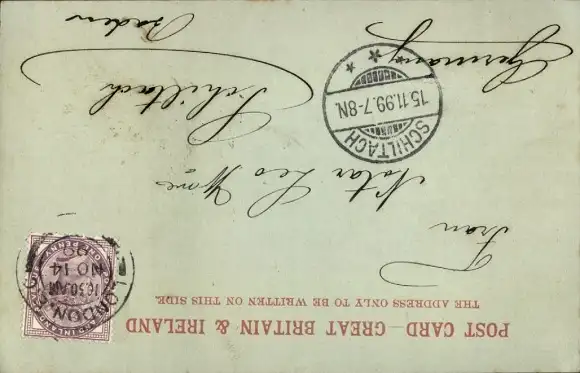 POST CARD - GREAT BRITAIN & IRELAND
THE ADDRESS ONLY TO BE WRITTEN ON THIS SIDE.
LONDON
10.30 AM
NO 14
99
Frau
Notar Leo
Schiltach
Baden
Germany
SCHILTACH
15.11.99.7-8N.